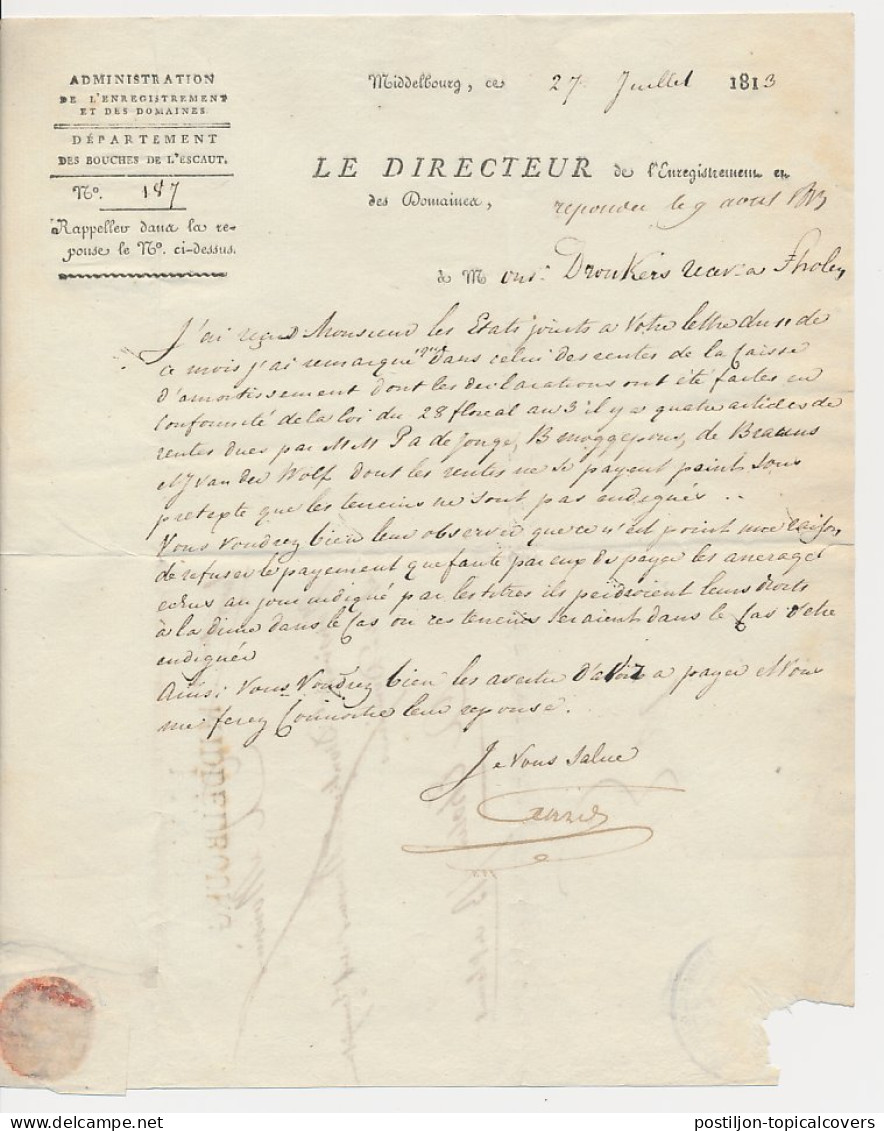 ADMINISTRATION
DE L'ENREGISTREMENT
ET DES DOMAINES.
DÉPARTEMENT
DES BOUCHES DE L'ESCAUT.
Nº. 187
Rappeller dans la re-
ponse le Nº. ci-dessus.
Middelbourg, ce 27 Juillet 1813
LE DIRECTEUR de l'Enregistrement et
des Domaines,
repondu le 9 aout 1813
à M onsr. Dronkers recevr a Tholen
J'ai reçu Monsieur les Etats joints a votre lettre du 11 de
ce mois j'ai remarqué que dans celui des rentes de la Caisse
d'amortissement dont les declarations ont été faites en
conformité de la loi du 28 floreal an 3 il y a quatre articles de
rentes dues par MM Pa de Jonge, B moggepons, de Brauns
et J van der Wolf dont les rentes ne se payent point sous
pretexte que les terreins ne sont pas endigués ..
Vous voudrez bien leur observer que ce n'est point une raison
de refuser le payement que faute par eux de payer les arrerages
echus au jour indiqué par les titres ils perdroient leurs droits
à la dime dans le Cas ou ces terreins seraient dans le Cas d'etre
endigués
Ainsi vous voudrez bien les avertir d'avoir a payer et vous
me ferez connoitre leur reponse.
Je vous salue
MIDDELBOURG
postiljon-topicalcovers